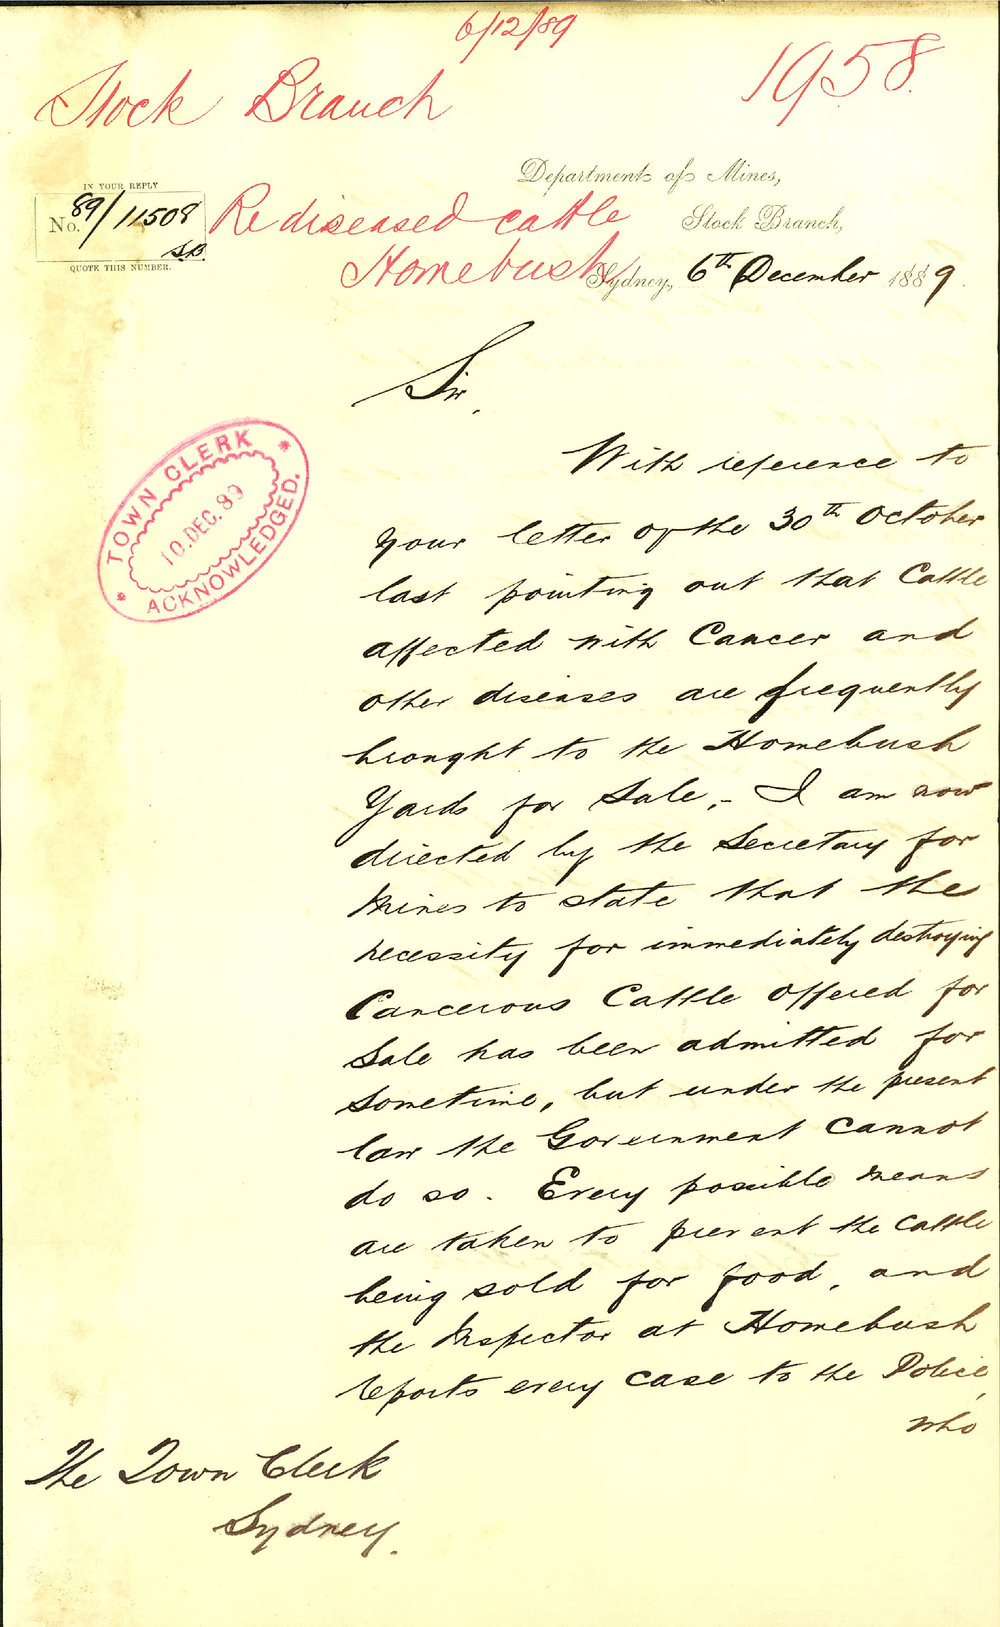 6/12/89
Stock Branch
1958.
Department of Mines,
IN YOUR REPLY
No. 89/11508
SB.
QUOTE THIS NUMBER.
Re diseased cattle
Stock Branch,
Homebush
Sydney, 6th December 1889.
Sir,
TOWN CLERK
10.DEC.89
ACKNOWLEDGED.
With reference to
your letter of the 30th October
last pointing out that Cattle
affected with Cancer and
other diseases are frequently
brought to the Homebush
Yards for Sale,- I am now
directed by the Secretary for
Mines to state that the
necessity for immediately destroying
Cancerous Cattle offered for
Sale has been admitted for
sometime, but under the present
law the Government cannot
do so. Every possible means
are taken to prevent the Cattle
being sold for food, and
the Inspector at Homebush
reports every case to the Police,
who
The Town Clerk
Sydney.